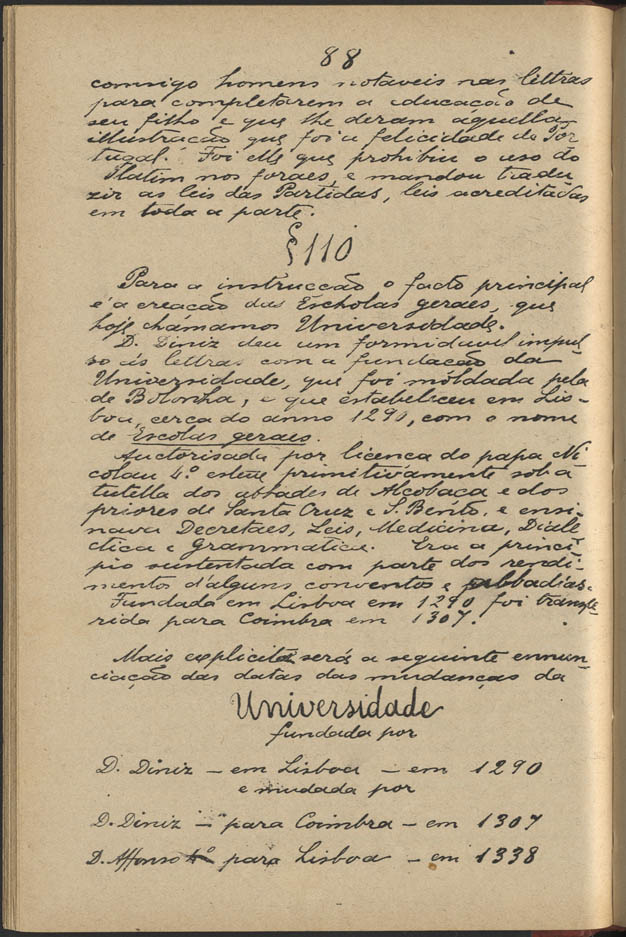 88
comsigo homens notaveis nas lettras
para completarem a educação de
seu filho e que lhe deram aquella
illustração que foi a felicidade de Por
tugal. Foi elle que prohibiu o uso do
latim nos foraes, e mandou tradu
zir as leis das Partidas, leis acreditadas
em toda a parte.
§110
Para a instrucção o facto principal
é a creação das Escholas geraes, que
hoje chámamos Universidade.
D. Diniz deu um formidavel impul-
so ás lettras com a fundação da
Universidade, que foi móldada pela
de Bolonha, e que estabeliceu em Lis-
boa, cerca do anno 1290, com o nome
de Escolas geraes.
Auctorisada por licença do papa Ni
colau 4.º esteve primitivamente sob a
tutella dos abbades de Alcobaça e dos
priores de Santa Cruz e S. Bento, e ensi-
nava Decretaes, Leis, Medicina, Diale
ctica e Grammatica. Era a princi-
pio sustentada com parte dos rendi-
mentos d'alguns conventos e abbadias.
Fundada em Lisboa em 1290 foi transfe-
rida para Coimbra em 1307.
Mais explicita será a seguinte ennun-
ciação das datas das mudanças da
Universidade
fundada por
D. Diniz — em Lisboa — em 1290
e mudada por
D. Diniz — para Coimbra — em 1307
D. Affonso 4º para Lisboa — em 1338